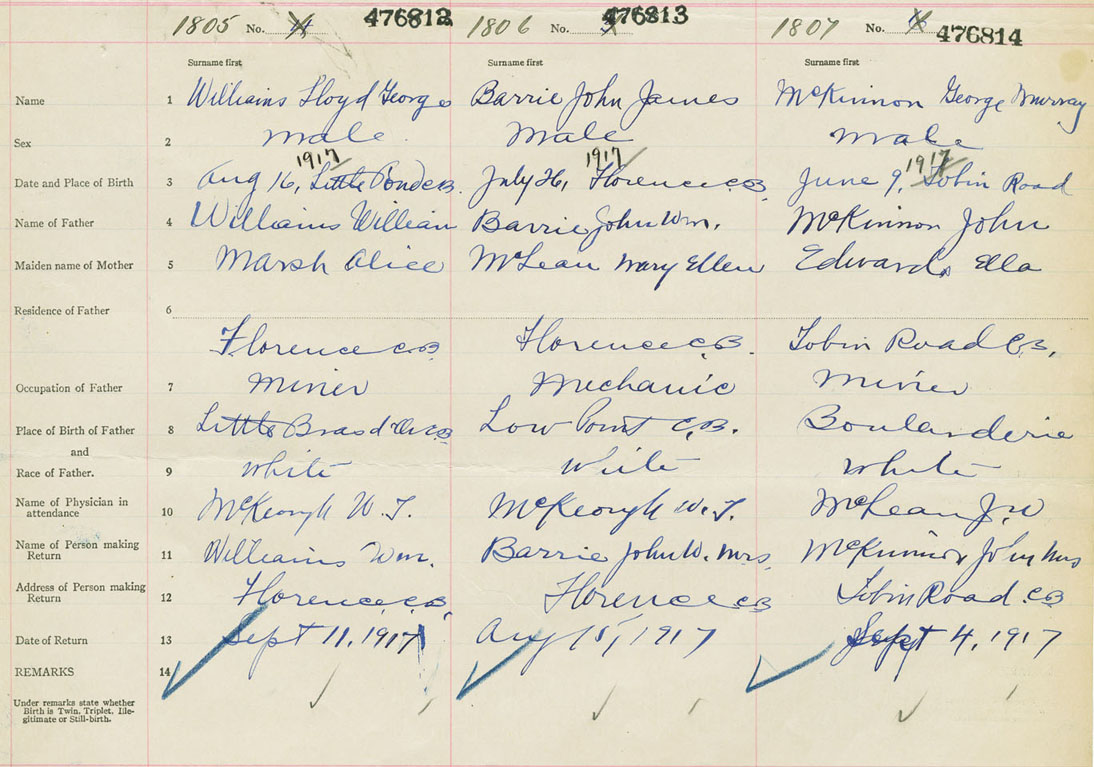 1805 No. 4 476812 1806 No. 5 476813 1807 No. 6 476814
Surname first Surname first Surname first
Name 1 Williams Lloyd George Barrie John James McKinnon George Murray
Sex 2 male Male male
1917 1917 1917
Date and Place of Birth 3 Aug 16, Little Pond C.B. July 26, Florence C.B. June 9, Tobin Road
Name of Father 4 Williams William Barrie John Wm. McKinnon John
Maiden name of Mother 5 Marsh Alice McLean Mary Ellen Edwards Ella
Residence of Father 6
Florence C.B. Florence C.B. Tobin Road C.B.
Occupation of Father 7 Miner Mechanic Miner
Place of Birth of Father 8 Little Bras d'Or C.B. Low Point C.B. Boularderie
and
Race of Father. 9 white white white
Name of Physician in
attendance 10 McKeough W. T. McKeough W. T. McLean J. W
Name of Person making
Return 11 Williams Wm. Barrie John W. Mrs McKinnon John Mrs
Address of Person making
Return 12 Florence C.B. Florence C.B Tobin Road C.B
Date of Return 13 Sept 11, 1917 Aug 15, 1917 Sept 4, 1917
REMARKS 14
Under remarks state whether
Birth is Twin, Triplet, Ille-
gitimate or Still-birth.